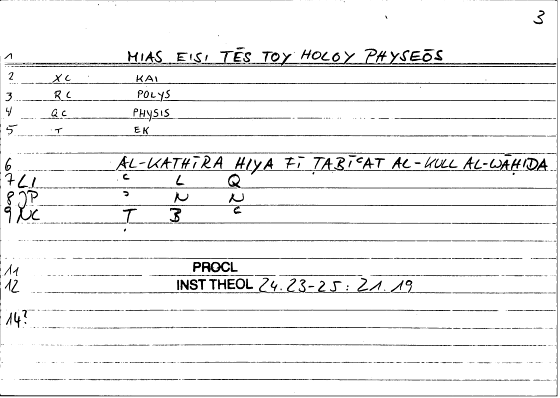 3
1 MIAS EISI TĒS TOY HOLOY PHYSEŌS
2 XC KAI
3 RC POLYS
4 QC PHYSIS
5 T EK
6 AL-KATHĪRA HIYA FĪ ṬABĪʿAT AL-KULL AL-WĀḤIDA
7 LI ʿ L Q
8 JP ʾ N N
9 NC Ṭ B ʿ
11 PROCL
12 INST THEOL 24.23-25 : 21.19
14?